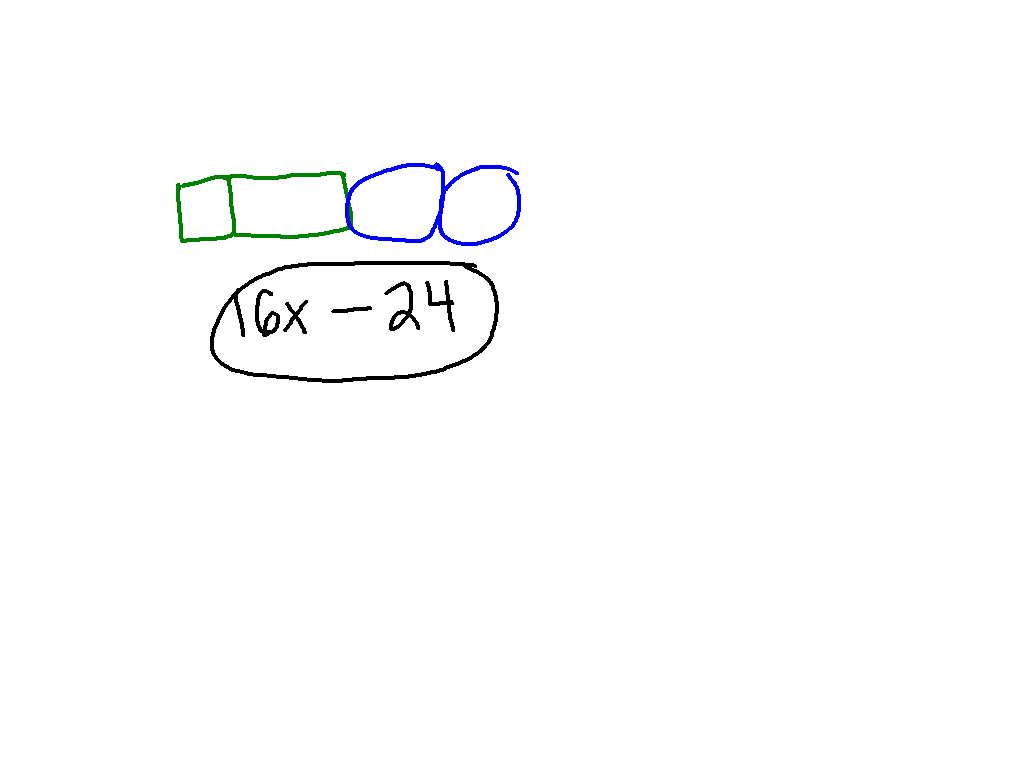 16x - 24